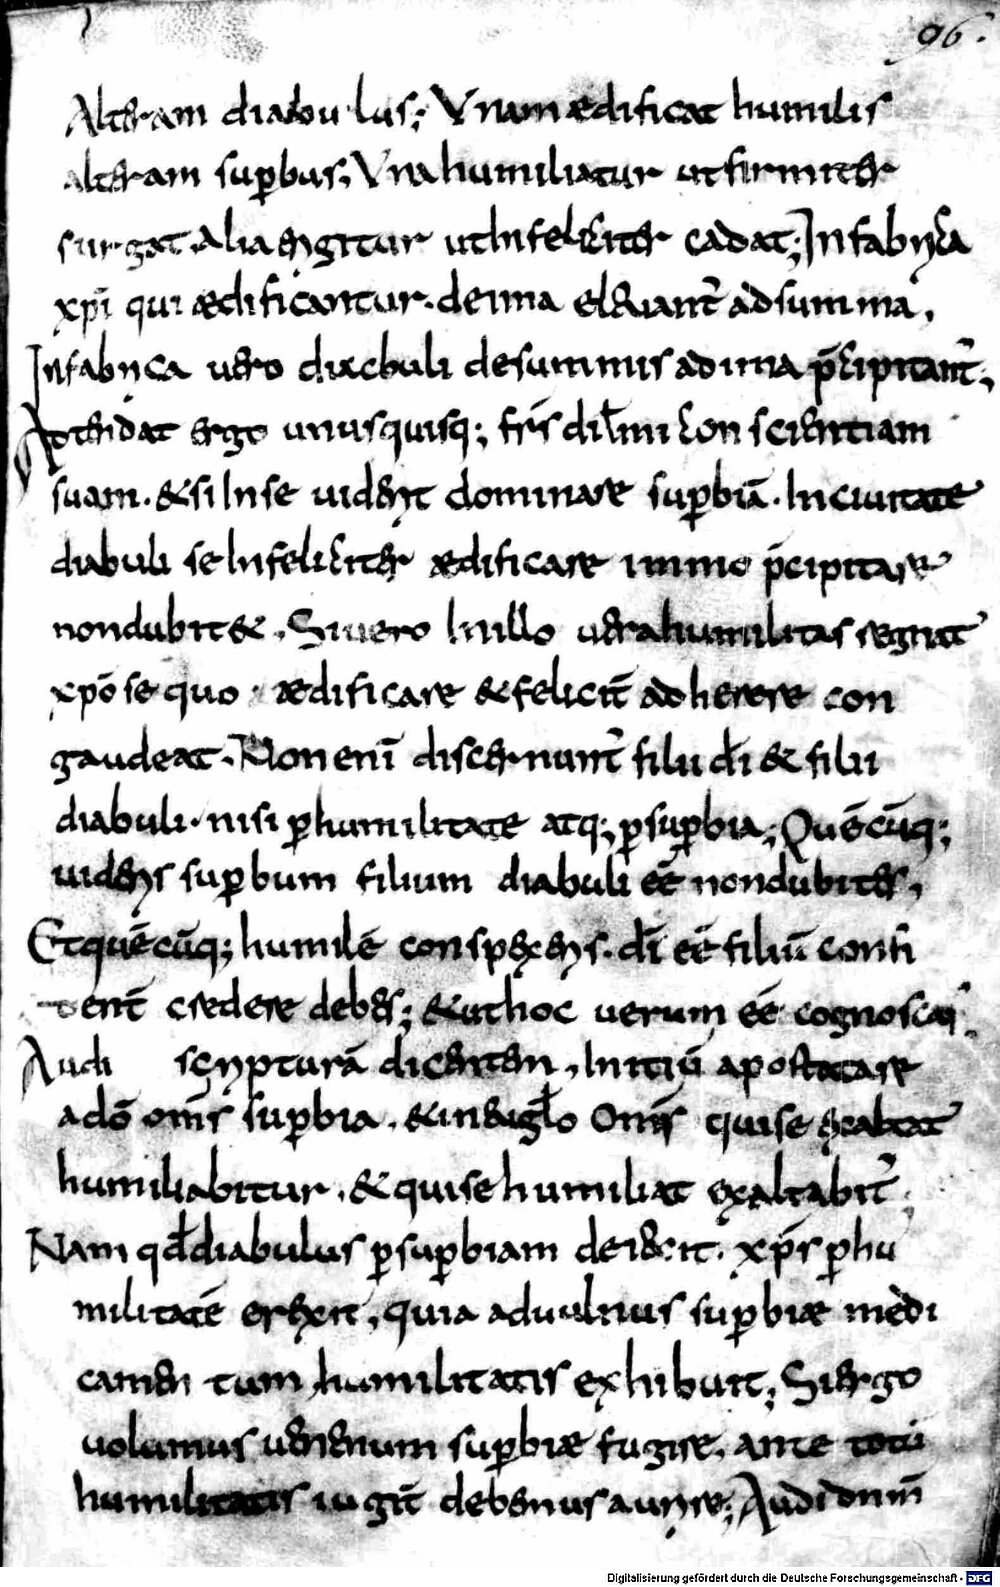 96.
Alteram diabulus; Unam ædificat humilis
alteram suꝑbus; Una humiliatur ut firmiter
surgat. Alia erigitur ut Infeliciter cadat; In fabrica
xp̄i qui ædificantur. de ima eleuant̄ ad summa,
In fabrica uero diabuli desummis ad ima p̄cipitant̄;
Adtendat ergo unusquisq; fr̄s dil̄mi conscientiam
suam. & si Inse uiderit dominare suꝑbiā. Inciuitate
diabuli se Infeliciter ædificare immo p̄cipitare
non dubit&. Si uero Inillo uera humilitas regnat
xp̄o se quo ædificare & felicit̄ adherere con
gaudeat. Non enī discernunt̄ filii dī & filii
diabuli. nisi ꝑ humilitate atq; ꝑ suꝑbia; Quēcūq;
uideris suꝑbum filium diabuli eē non dubites,
Et quēcūq; humilē conspexeris. dī eē filiū confi
dent̄ credere debes; & ut hoc uerum eē cognoscas
Audi scripturā dicentem, Initiū apostatare
adō om̄s suꝑbia. & in euāgl̄o Om̄s qui se exaltat
humiliabitur. & qui se humiliat exaltabit̄;
Nam qd̄ diabulus ꝑ suꝑbiam deiecit. xp̄s ꝑ hu
militatē erexit, quia ad uulnus suꝑbiæ medi
camentum humilitatis exhibuit; Si ergo
uolumus uenenum suꝑbiæ fugire. ante totū
humilitatis iugit̄ debemus aurire; Audi dnm̄
Digitalisierung gefördert durch die Deutsche Forschungsgemeinschaft - DFG